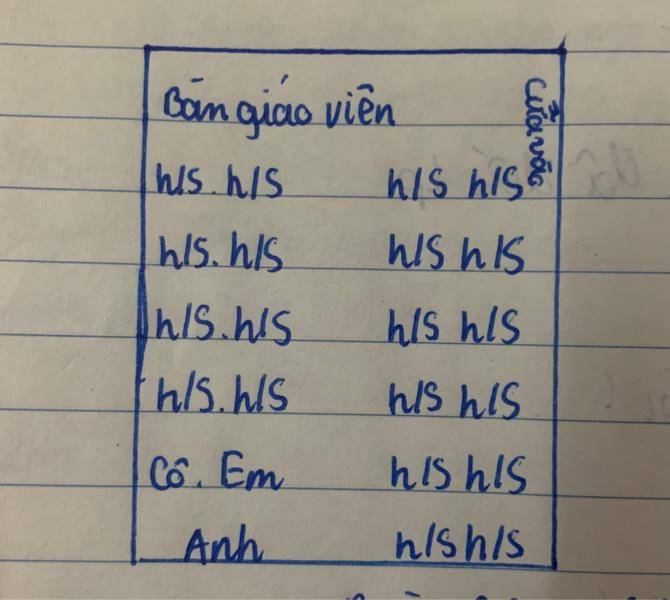 Bàn giáo viên
Cửa vào
h/s. h/s h/s h/s
h/s. h/s h/s h/s
h/s. h/s h/s h/s
h/s. h/s h/s h/s
Cô. Em h/s h/s
Anh h/s h/s